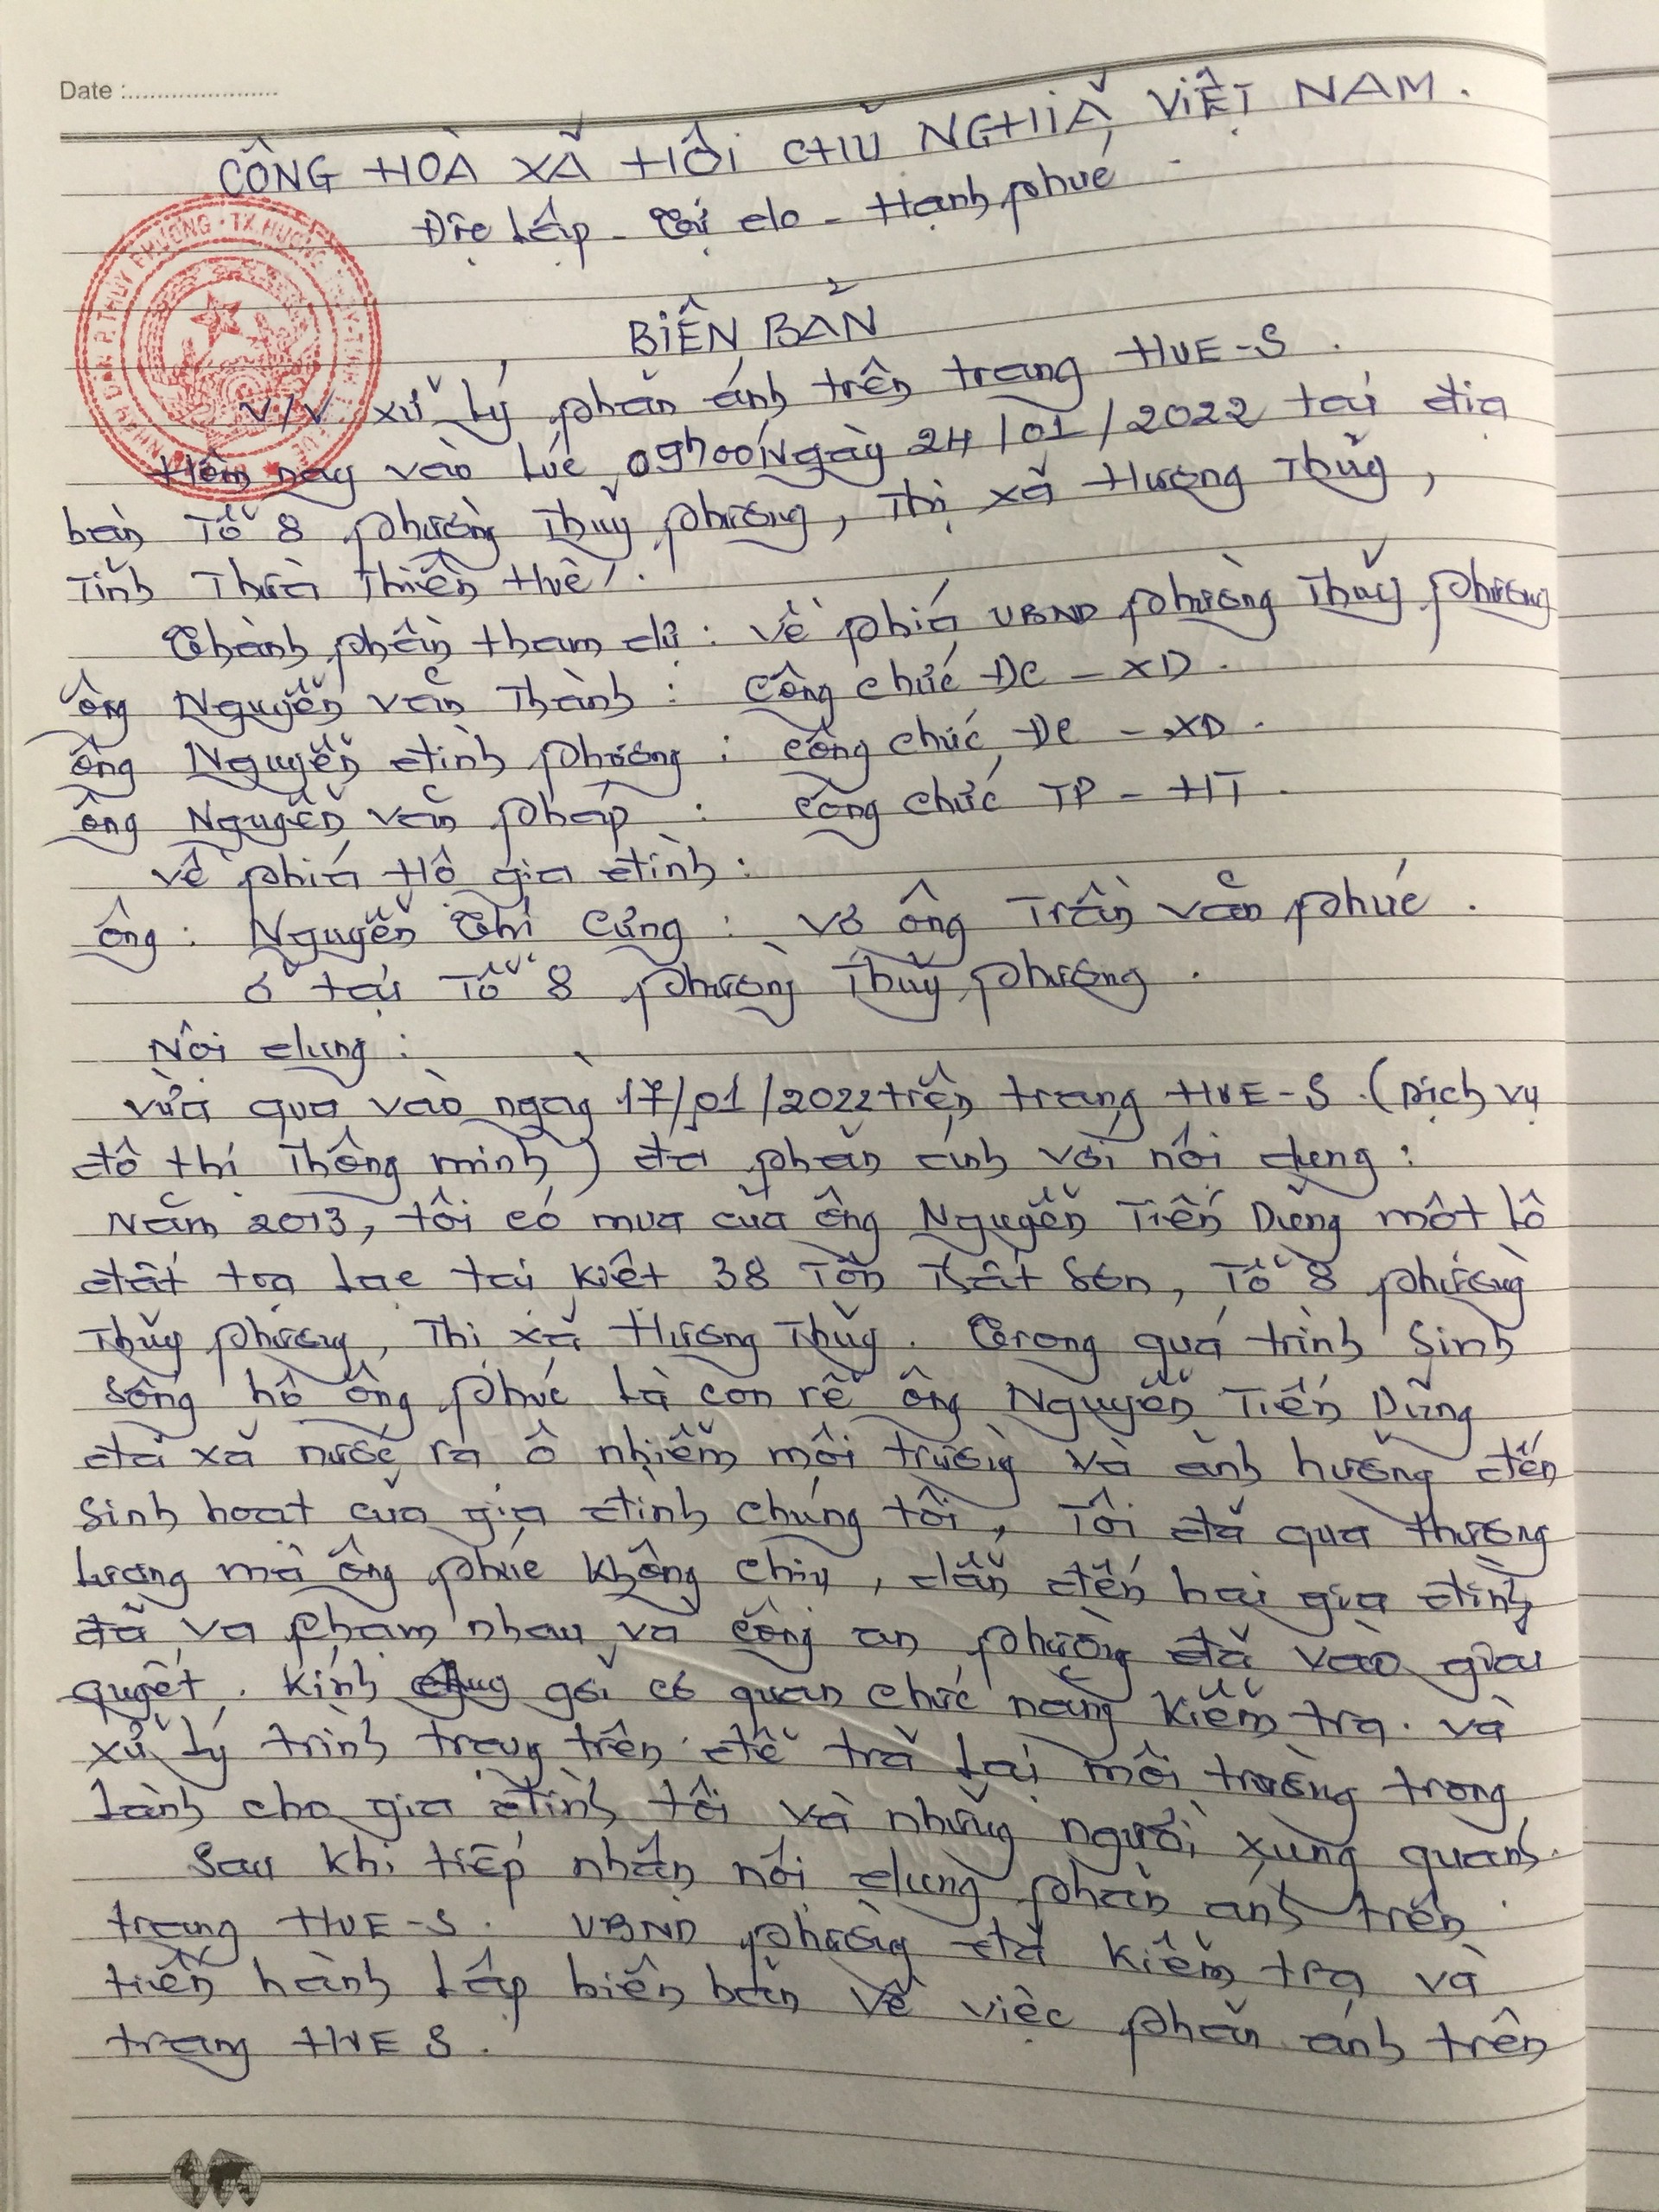 Date :
CÔNG HÒA XÃ HỘI CHŨ NGHIÃ VIỆT NAM.
Độc lập - Tự do - Hạnh phúc
BIÊN BẢN
V/V xử lý phản ánh trên trang HUE-S.
Hôm nay vào lúc 09h00' Ngày 24/01/2022 tại địa
bàn Tổ 8 phường Thuỷ phương, Thị xã Hương Thuỷ,
Tỉnh Thừa Thiên Huế.
Thành phần tham dự: Về phía UBND phường Thuỷ phương
ông Nguyễn văn Thành: Công chức ĐC - XD.
ông Nguyễn đình phương: công chức ĐC - XD.
ông Nguyễn văn pháp: công chức TP - HT.
Về phía Hộ gia đình:
ông: Nguyễn Thị Cứng: Vợ ông Trần văn phúc.
ở tại Tổ 8 phường Thuỷ phương.
Nội dung:
vừa qua vào ngày 17/01/2022 trên trang HUE-S (Dịch vụ
đô thị Thông minh) đã phản ánh với nội dung:
Năm 2013, tôi có mua của ông Nguyễn Tiến Dũng một lô
đất toạ lạc tại Kiệt 38 Tôn Thất Sơn, Tổ 8 phường
Thuỷ phương, Thị xã Hương Thuỷ. Trong quá trình Sinh
sống hộ ông phúc là con rể ông Nguyễn Tiến Dũng
đã xả nước ra ô nhiễm môi trường và ảnh hưởng đến
Sinh hoạt của gia đình chúng tôi, Tôi đã qua thương
lượng mà ông phúc không chịu, dẫn đến hai gia đình
đã va phạm nhau và công an phường đã vào giải
quyết. Kính gởi cơ quan chức năng kiểm tra. và
xử lý trình trạng trên để trả lại môi trường trong
lành cho gia đình tôi và những người xung quanh.
Sau khi tiếp nhận nội dung phản ánh trên
trang HUE-S. UBND phường đã kiểm tra và
tiến hành lập biên bản về việc phản ánh trên
trang HUE S.